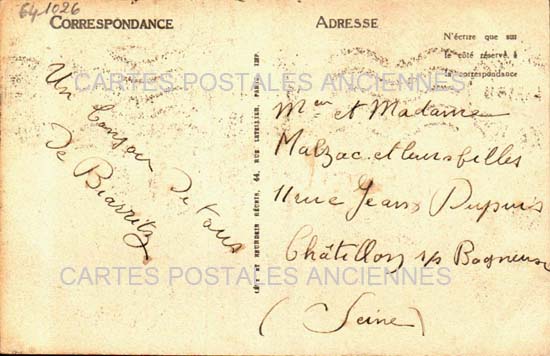 641026
CORRESPONDANCE
ADRESSE
N'écrire que sur
le côté réservé à
la correspondance
CARTES POSTALES ANCIENNES
Un Bonjour De tous
De Biarritz
LÉVY ET NEURDEIN RÉUNIS, 44, RUE LETELLIER, PARIS, IMP.
Mr et Madame
Malzac et leurs filles
11 rue Jean Dupuis
Châtillon s/s Bagneux
(Seine)
CARTES POSTALES ANCIENNES